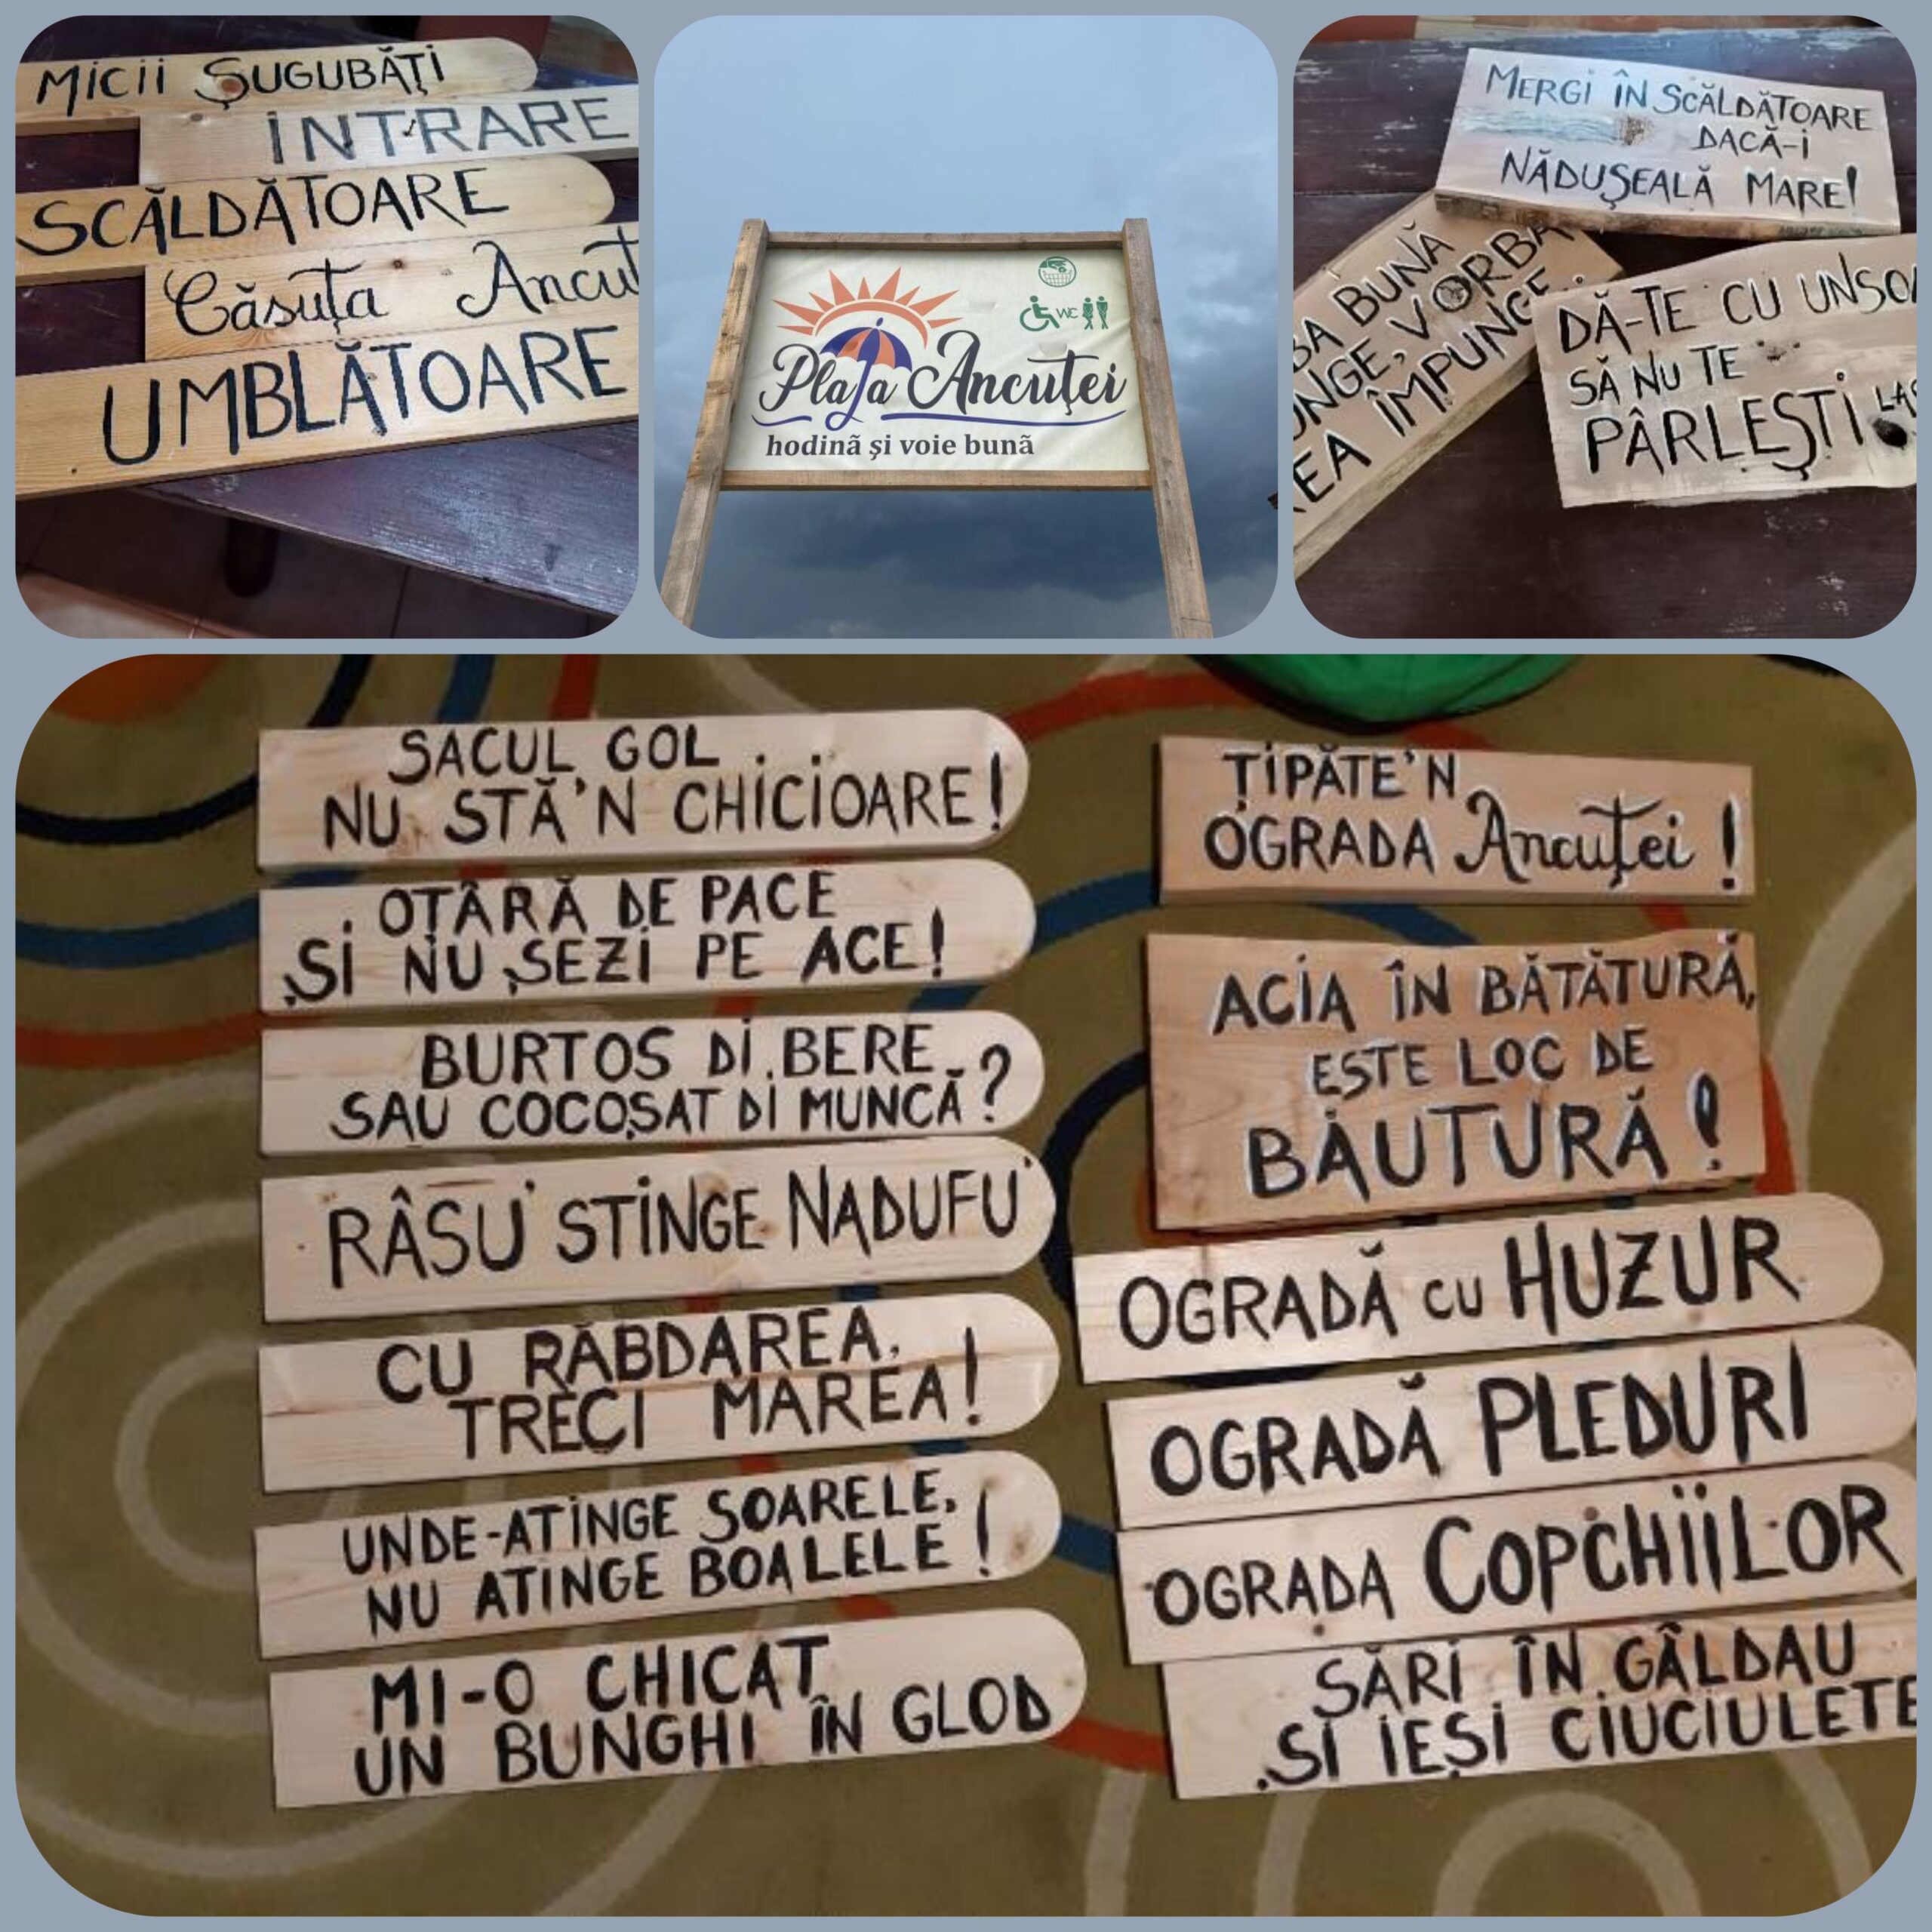 MICII ȘUGUBĂȚI
INTRARE
SCĂLDĂTOARE
Căsuța
UMBLĂTOARE
WC
Plaja Ancuței
hodină și voie bună
MERGI ÎN SCĂLDĂTOARE
DACĂ-I
NĂDUȘEALĂ MARE!
BUNĂ
VORBA
ÎMPUNGE..
DĂ-TE CU
SĂ NU TE
PÂRLEȘTI
SACUL GOL
NU STĂ'N CHICIOARE!
OȚÂRĂ DE PACE
ȘI NU ȘEZI PE ACE!
BURTOS DI BERE
SAU COCOȘAT DI MUNCĂ?
RÂSU' STINGE NADUFU'
CU RĂBDAREA,
TRECI MAREA!
UNDE-ATINGE SOARELE,
NU ATINGE BOALELE!
MI-O CHICAT
UN BUNGHI ÎN GLOD
ȚIPĂTE'N
OGRADA Ancuței!
ACIA ÎN BĂTĂTURĂ,
ESTE LOC DE
BĂUTURĂ!
OGRADĂ CU HUZUR
OGRADĂ PLEDURI
OGRADA COPCHIILOR
SĂRI ÎN GÂLDAU
ȘI IEȘI CIUCIULETE